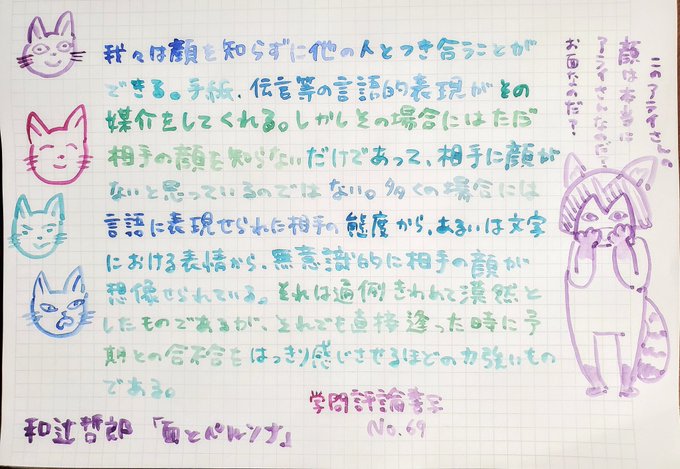 我々は顔を知らずに他の人とつき合うことが
できる。手紙、伝言等の言語的表現がその
媒介をしてくれる。しかしその場合にはただ
相手の顔を知らないだけであって、相手に顔が
ないと思っているのではない。多くの場合には
言語に表現せられた相手の態度から、あるいは文字
における表情から、無意識的に相手の顔が
想像せられている。それは通例きわめて漠然と
したものであるが、それでも直接逢った時に予
期との合不合をはっきり感じさせるほどの力強いもの
である。
和辻哲郎「面とペルソナ」
学問評論書写
No.69
このアライさんの
顔は本当に
アライさんなのだ?
お面なのだ?